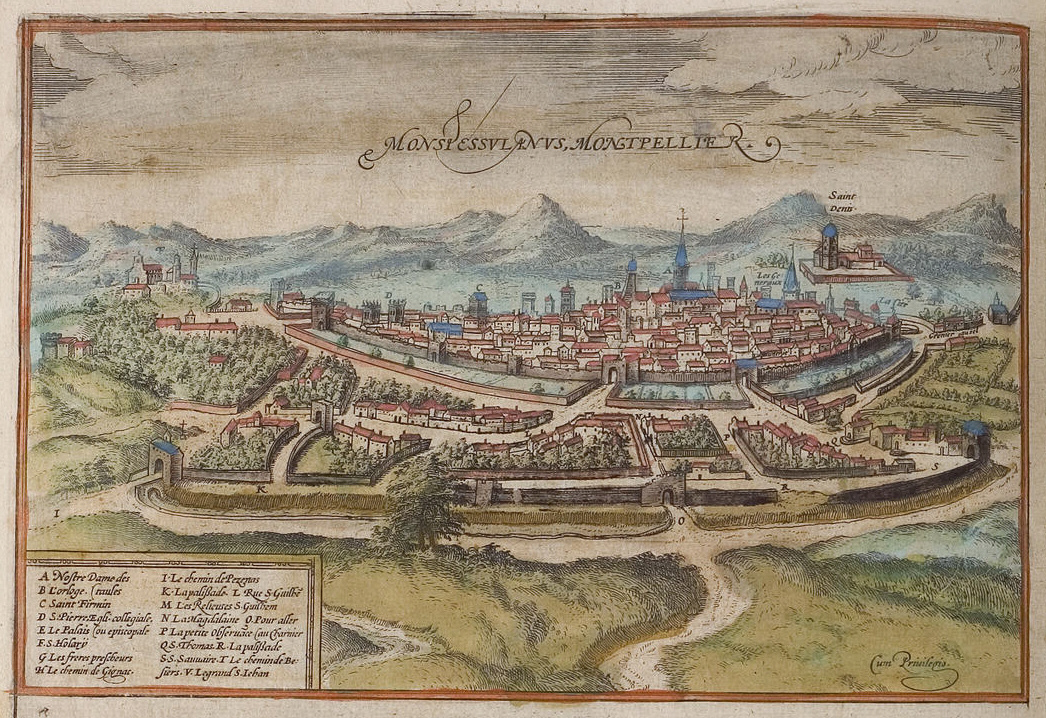 MONSPESSVLANVS, MONTPELLIER.
Saint
Denis.
Les Ge
neraux
D
C
B
K
I
N
P
Q
R
S
O
A Nostre Dame des
B L'orloge. (taules
C Saint Firmin
D S. Pierre Egli. collegiale,
E Le Palais (ou episcopale
F. S. Holary
G Les freres prescheurs
H Le chemin de Gignac.
I Le chemin de Pezenas
K La pallissade. L Rue S Guilhē
M Les Relieuses S Guilhem
N La Magdalaine O Pour aller
P La petite Observāce (au Charnier
Q S. Thomas. R. La palissade
S S. Sauuaire. T Le chemin de Be-
siers. V Legrand S. Iehan
Cum Privilegio.